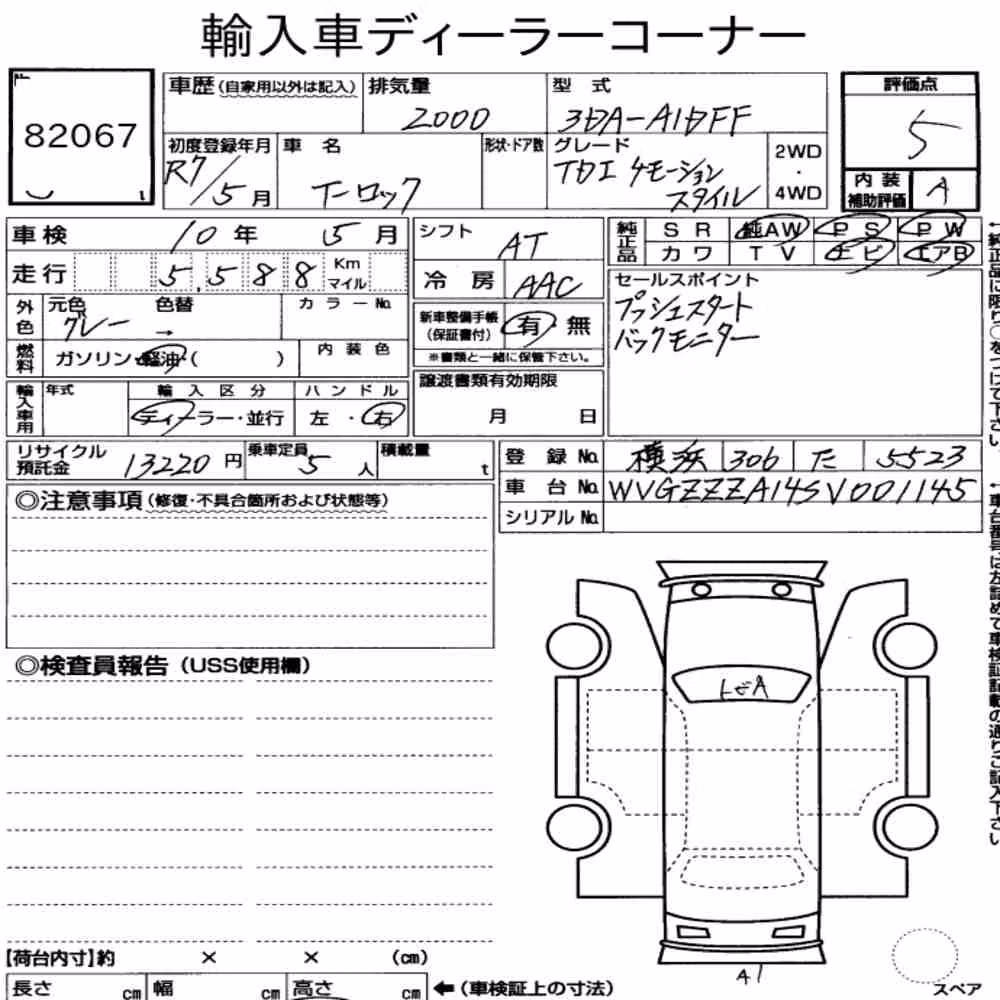 輸入車ディーラーコーナー
82067
車歴(自家用以外は記入) 排気量 2000 型式 3DA-A1DFF
評価点 5
初度登録年月 R7/5月 車名 T-ロック 形状・ドア数 グレード TDI 4モーション スタイル 2WD・4WD
内装補助評価 A
車検 10年 5月
走行 5,588 Km マイル
外色 元色 グレー 色替 → カラーNo.
燃料 ガソリン・軽油・( ) 内装色
輸入車用 年式 輸入区分 ディーラー・並行 ハンドル 左・右
シフト AT
冷房 AAC
新車整備手帳(保証書付) 有・無
※書類と一緒に保管下さい。
譲渡書類有効期限
月 日
純正品 SR 純AW PS PW
カワ TV ナビ エアB
セールスポイント
プッシュスタート
バックモニター
リサイクル預託金 13220円 乗車定員 5人 積載量 t
登録No. 横浜 306 た 5523
車台No. WVGZZZA14SV001145
シリアルNo.
◎注意事項(修復・不具合箇所および状態等)
◎検査員報告(USS使用欄)
A
A1
スペア
【荷台内寸】約 × × (cm)
長さ cm 幅 cm 高さ cm ←(車検証上の寸法)
←純正品に限り○をつけて下さい。
←車台番号は左詰めで車検証記載の通りご記入下さい